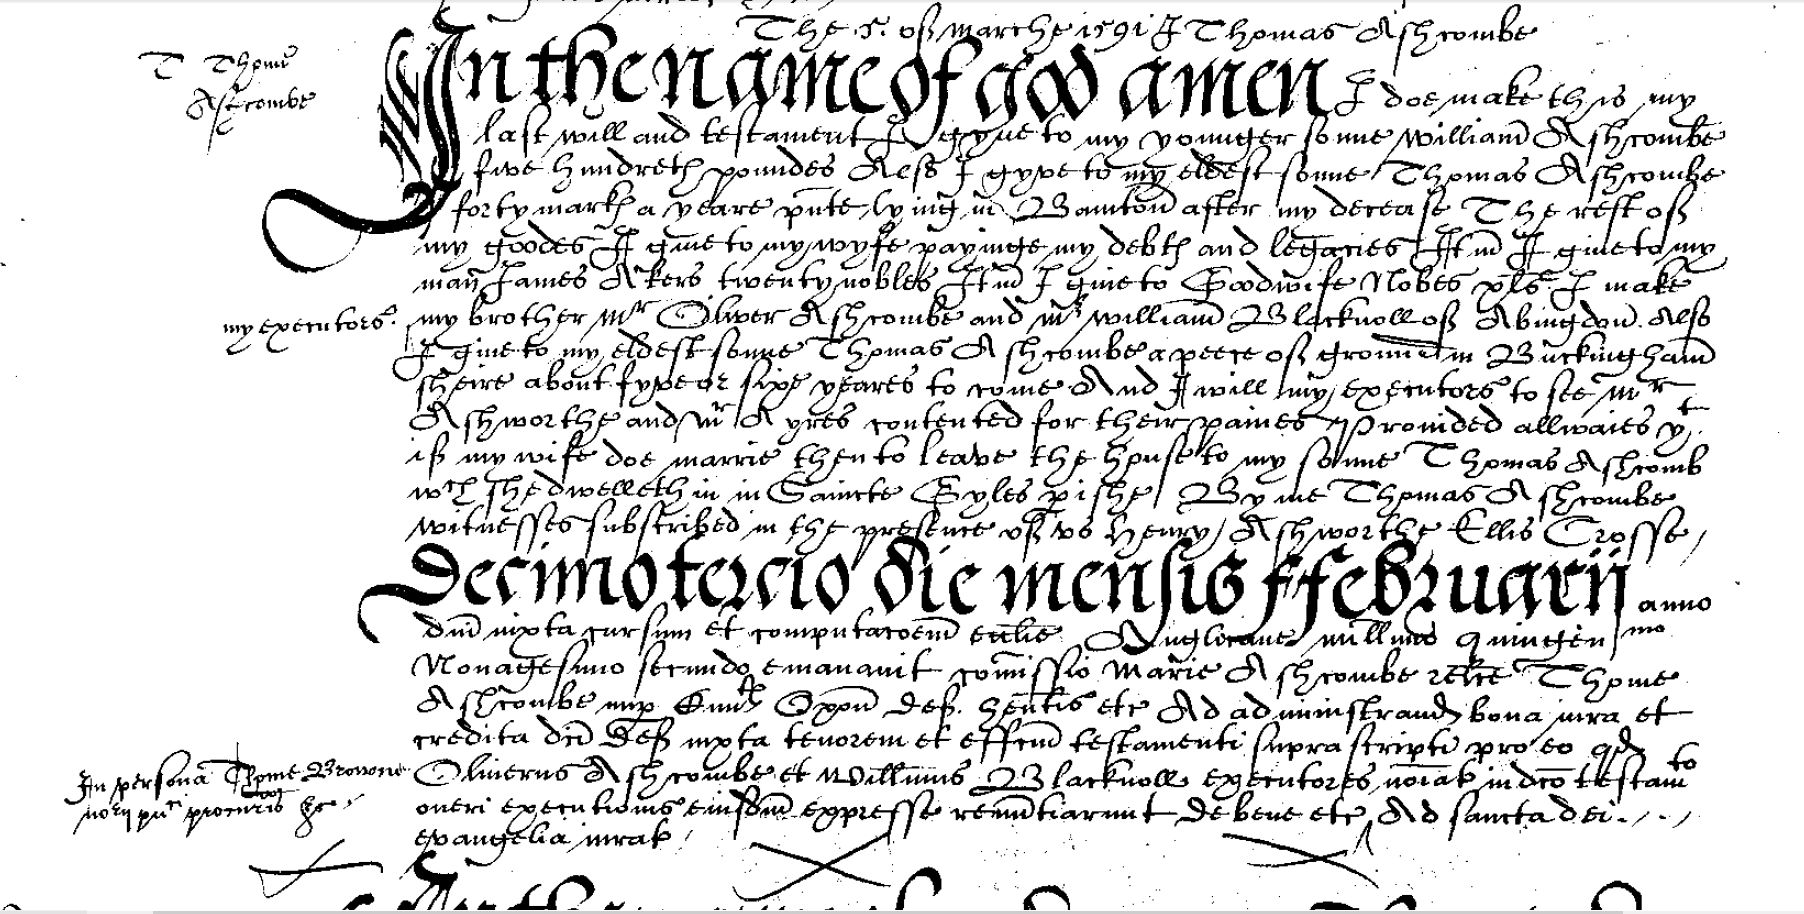 The 5. of Marche 1591 I Thomas Ashcombe
T Thome
Ashcombe
In the name of god amen I doe make this my
last will and testament I gyve to my younger sonne William̄ Ashcombe
five hundreth poundes Also I gyve to my eldest sonne Thomas Ashcombe
forty mark a yeare lying in Bamton after my decease The rest of
my goodes I give to my wyfe payinge my debts and legacies Itm̄ I give to my
man James Akers twenty nobles Itm̄ I give to Goodwife Nobes xls I make
my executors.
my brother mr Oliver Ashcombe and mr William̄ Blacknoll of Abingdon. Also
I give to my eldest sonne Thomas Ashcombe a peece of ground in Buckingham̄
sheire about fyve or sixe yeares to come And I will my executors to see mr
Ashworthe and mr Ayres contented for their paines Provided allwaies yt.
if my wife doe marrie then to leave the house to my sonne Thomas Ashcomb
wch she dwelleth in in Saincte Gyles pishe By me Thomas Ashcombe
witnesses subscribed in the presence of us Henry Ashworthe Ellis Crosse
Decimo tercio die mensis ffebruarij anno
dn̄i iuxta cursum et computacoem̄ eccl̄ie Anglicane mill̄mo quingen mo
Nonagesimo secundo emanavit com̄issio Marie Ashcombe rel̄ce Thome
Ashcombe nup Oxon̄ def. hen̄tis etc Ad administrand bona iura et
credita dc̄i def iuxta tenorem et effc̄um testamenti suprascripti pro eo qd
In persona Thome Browne
Oliverus Ashcombe et Will̄mus Blacknoll executores no̅iat in dc̄o testam to
no̅rij pu̅ procuris &c.
oneri executionis eiusdm̄ expresse renūtiarunt De bene etc Ad sancta dei
evangelia iurat